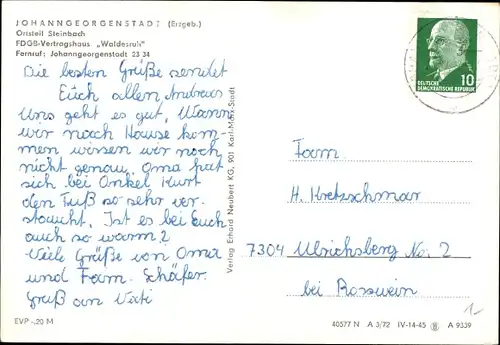 JOHANNGEORGENSTADT (Erzgeb.)
Ortsteil Steinbach
FDGB-Vertragshaus „Waldesruh"
Fernruf: Johanngeorgenstadt 23 34
Die besten Grüße sendet
Euch allen Andreas
Uns geht es gut, Wann
wir nach Hause kom-
men wissen wir noch
nicht genau. Oma hat
sich bei Onkel Kurt
den Fuß so sehr ver-
staucht. Ist es bei Euch
auch so warm?
Viele Grüße von Oma
und Fam. Schäfer.
Gruß an
EVP -,20 M
Verlag Erhard Neubert KG, 901 Karl-Marx-Stadt
10
DEUTSCHE
DEMOKRATISCHE REPUBLIK
Fam.
H. Kretzschmar
7304 Ulrichsberg No. 2
bei Rosswein
40577 N A 3/72 IV-14-45 A 9339